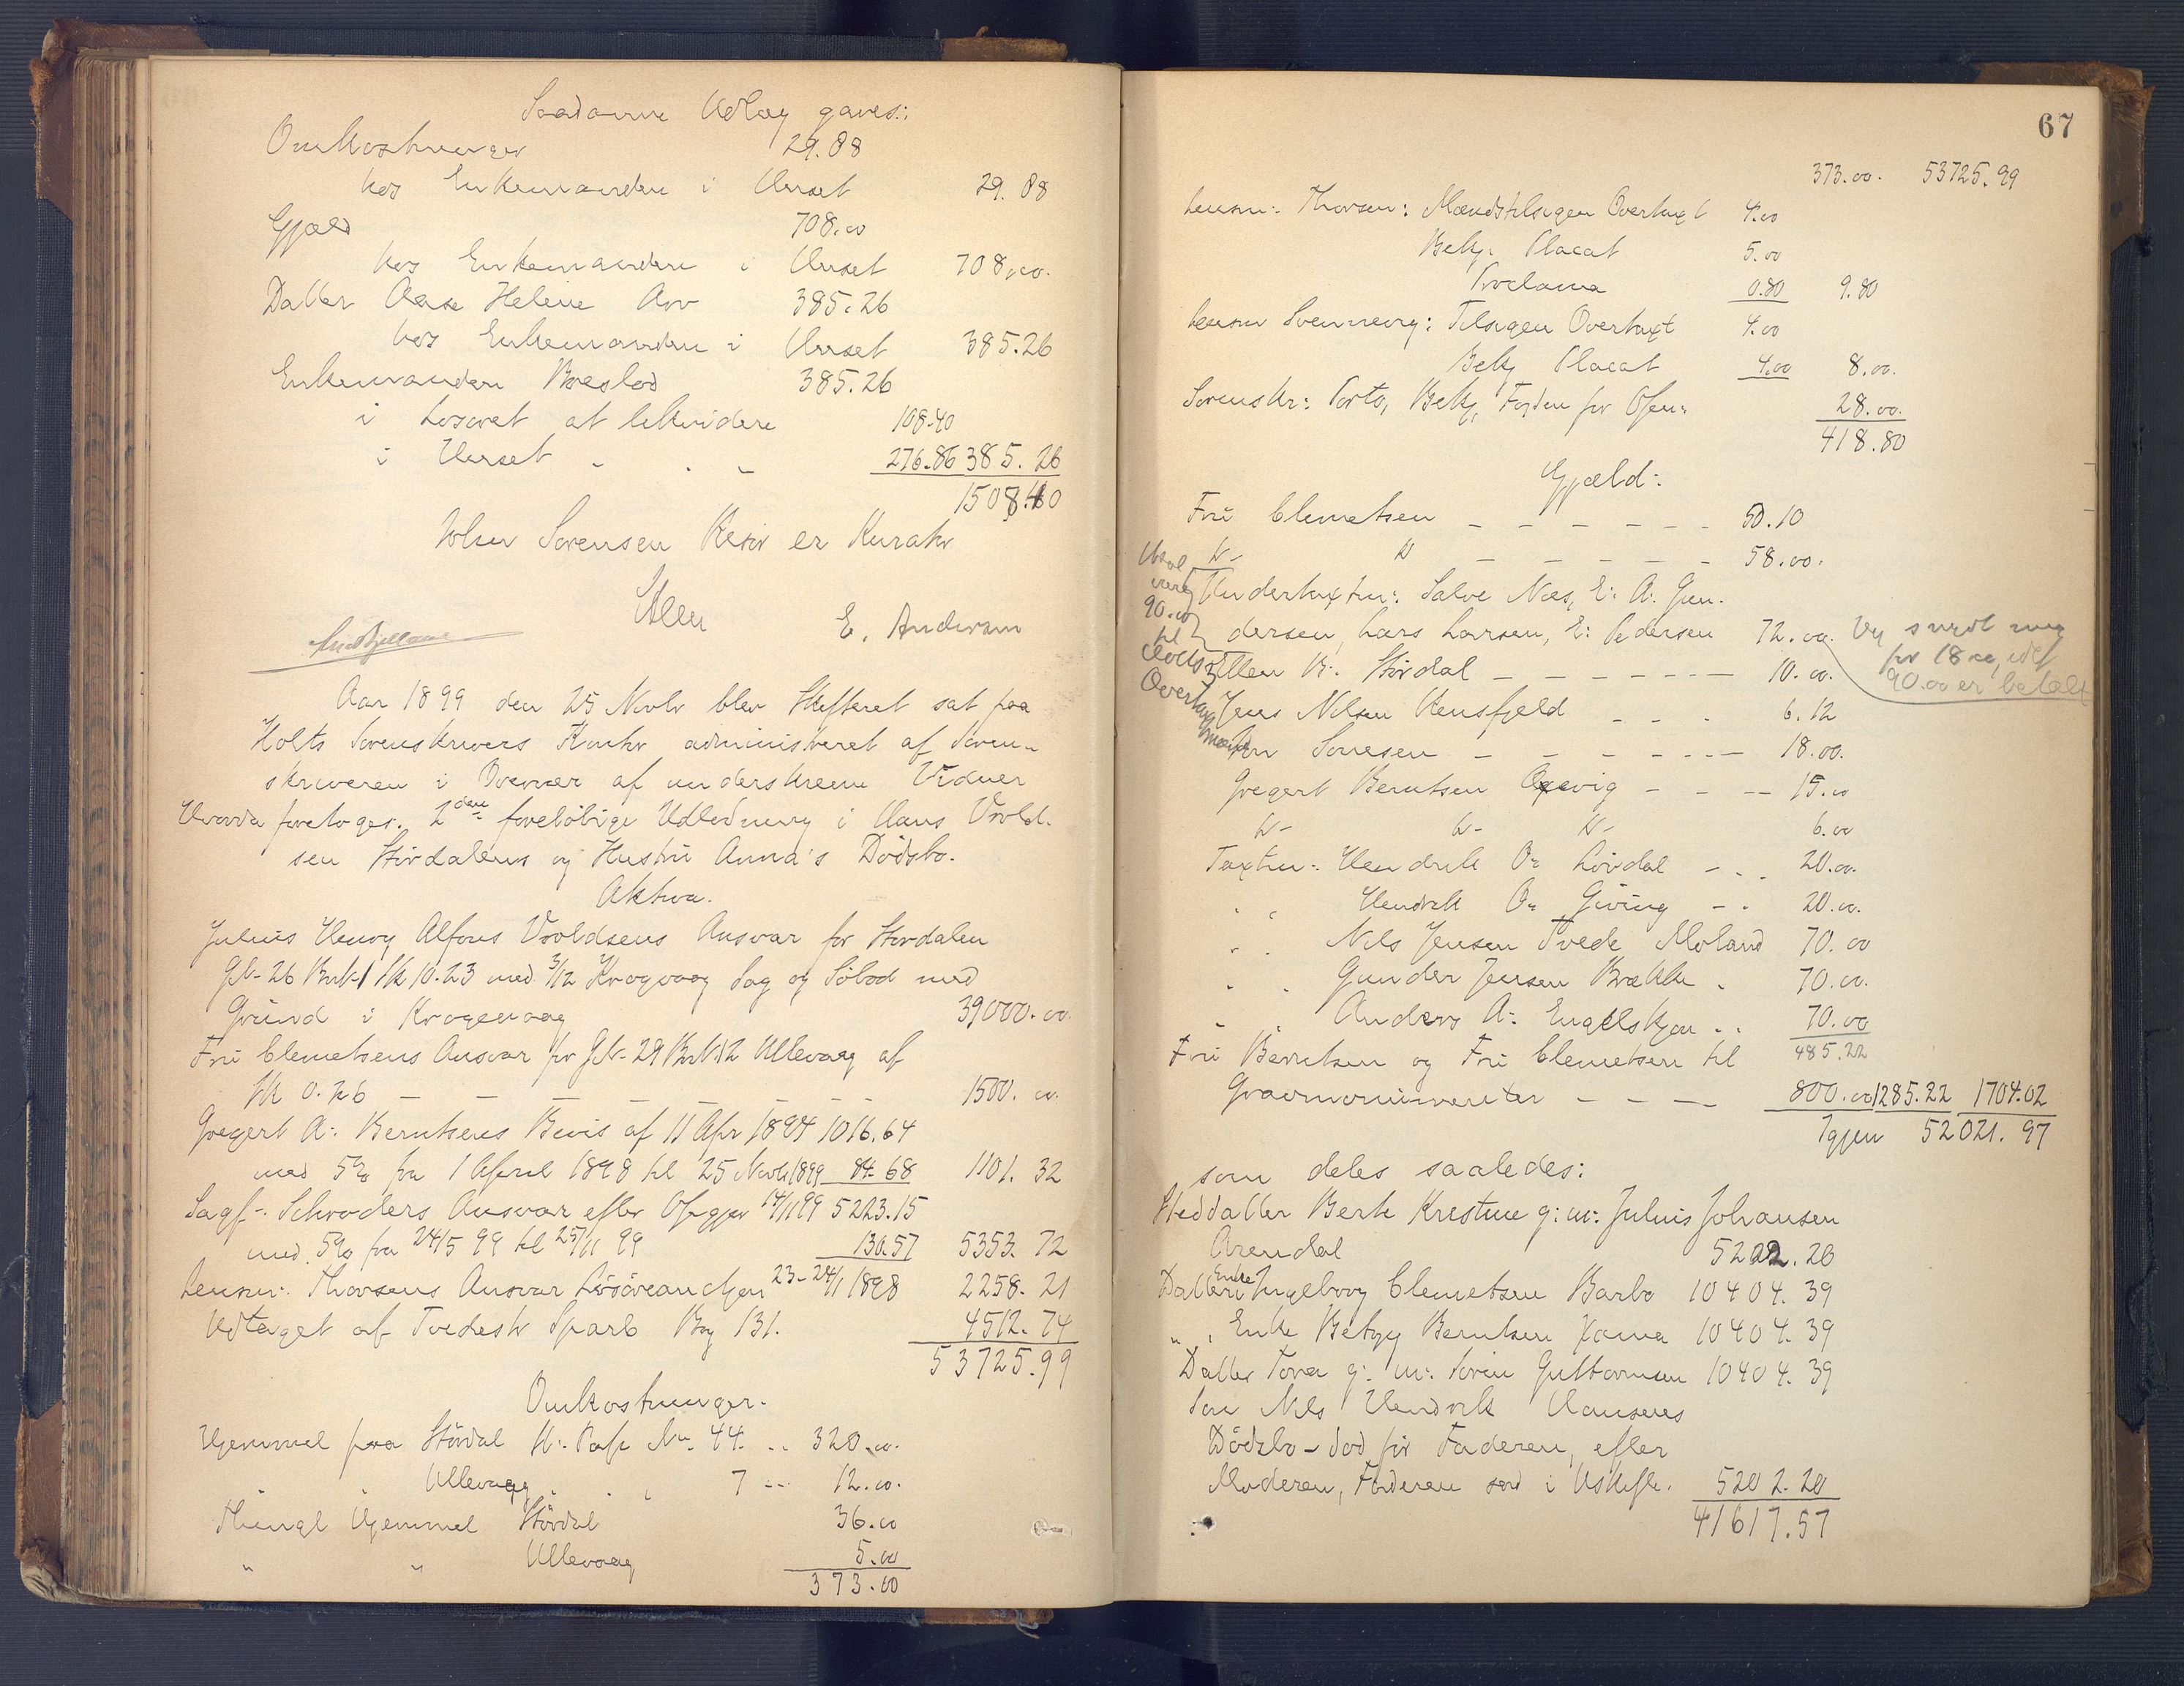 Saadanne Udlæg gaves:
Omkostninger 29.88
hos Enkemanden i Uerset 29.88
Gjæld 708.00
hos Enkemanden i Uerset 708.00.
Datter Aase Helene Arv 385.26
hos Enkemanden i Uerset 385.26
Enkemanden Boeslod 385.26
i Løsøret at likvidere 108.40
i Uerset - - - 276.86 385.26
1508.40
Sørensen er Kurator
E. Andersen
Aar 1899 den 25 Novbr blev Skifteret sat paa
Holts Sorenskrivers Kontor administreret af Soren-
skriveren i Overvær af underskrevne Vidner
Hvorda foretoges. 2den foreløbige Udlodning i Hans Vrold-
sen Stordalens og Hustru Anna's Dødsbo.
Aktiva.
Julius Henry Alfons Vroldsens Ansvar for Stordalen
GN- 26 BrN-1 Sk 10.23 med 3/12 Krogvaag Sag og Søbod med
Grund i Krogevaag 39000.00.
Fru Clemetsens Ansvar for GN- 29 BrN 12 Ullevaag af
Sk 0.26 - - - - - - 1500.00.
Gregert A. Berntsens Bevis af 11 Apr 1894 1016.64
med 5% fra 1 April 1898 til 25 Novb 1899 84.68 1101.32
Sagf- Schrøders Ansvar efter Opgjør 14/11 99 5223.15
med 5% fra 24/5 99 til 25/11 99 130.57 5353.72
Lensm: Thorsens Ansvar Løsøreauktion 23-24/11 1898 2258.21
Udtaget af Tvedestr Sparb Bog 131. 4512.74
53725.99
Omkostninger.
Hjemmel paa Stordal St. Pap No. 44. .. 320.00.
" " Ullevaag " " 7 -- 12.00.
Thingl Hjemmel Stordal 36.00
" " Ullevaag 5.00
373.00
67
373.00. 53725.99
Lensm: Thorsen: Mændstilsigen Overtaxt 4.00
Bekj. Placat 5.00
Proclama 0.80 9.80
Lensm Svenneviq: Tilsigen Overtaxt 4.00
Bekj Placat 4.00 8.00.
Sorenskr: Porto, Bekj, 28.00.
418.80
Gjæld:
Fru Clemetsen - - - - - - 50.10
D- D - - - - - 58.00.
Undertaxtm: Salve Næs, E. A. Gun-
dersen, Lars Larsen, E. Pedersen 72.00.
90.00
til
Overtax
mænd
for 18 00, idet
90.00 er betalt
Ellen K. Stordal - - - - - - 10.00.
Jens Nilsen Rensfjeld - - - 6.12
Sørensen - - - - - - 18.00.
Gregert Berntsen Oxevig - - -- 15.00
D- D- D- 6.00
Taxtm: Hendrik O. Løvdal - - - 20.00.
" " Hendrik O. Gjeving - - 20.00.
" " Nils Jensen Tvede Moland 70.00
" " Gunder Jensen Brække " 70.00.
" " Anders A. Engelskjøn .. 70.00
485.22
Fru Berntsen og Fru Clemetsen til
Gravmonumenter - - - 800.00 1285.22 1704.02
Igjen 52021.97
som deles saaledes:
Steddatter Berte Kristine g: m: Julius Johansen
Arendal 5202.20
Datteren Enke Ingeborg Clemetsen Barbo 10404.39
" " Enke Betzy Berntsen 10404.39
Datter Tora g: m: Søren Guttormsen 10404.39
Søn Nils Hendrik Hansens
Dødsbo - død før Faderen, efter
Moderen, Faderen sad i Uskifte. 5202.20
41617.57